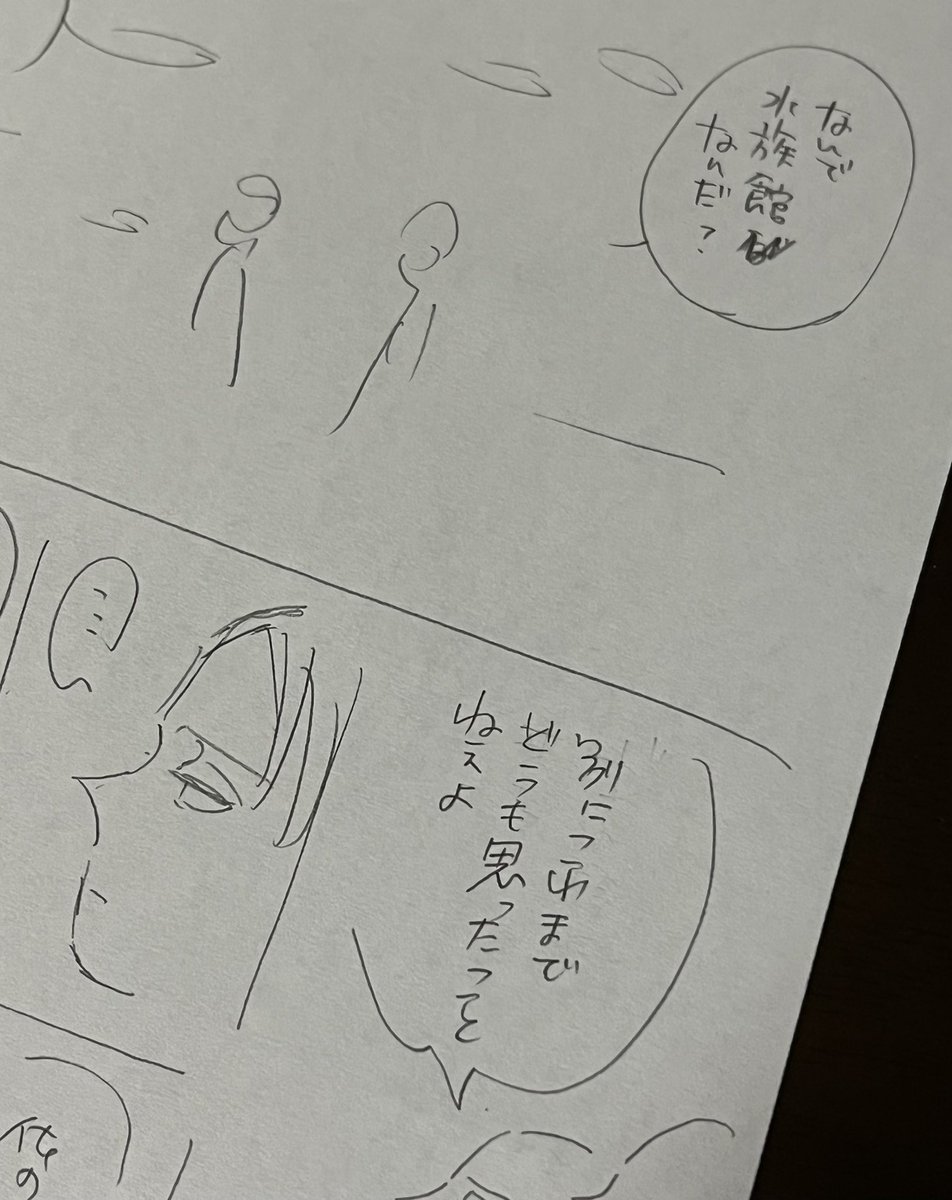 なんで
水族館
なんだ?
別に今まで
どうも思ったこと
ねぇよ
の